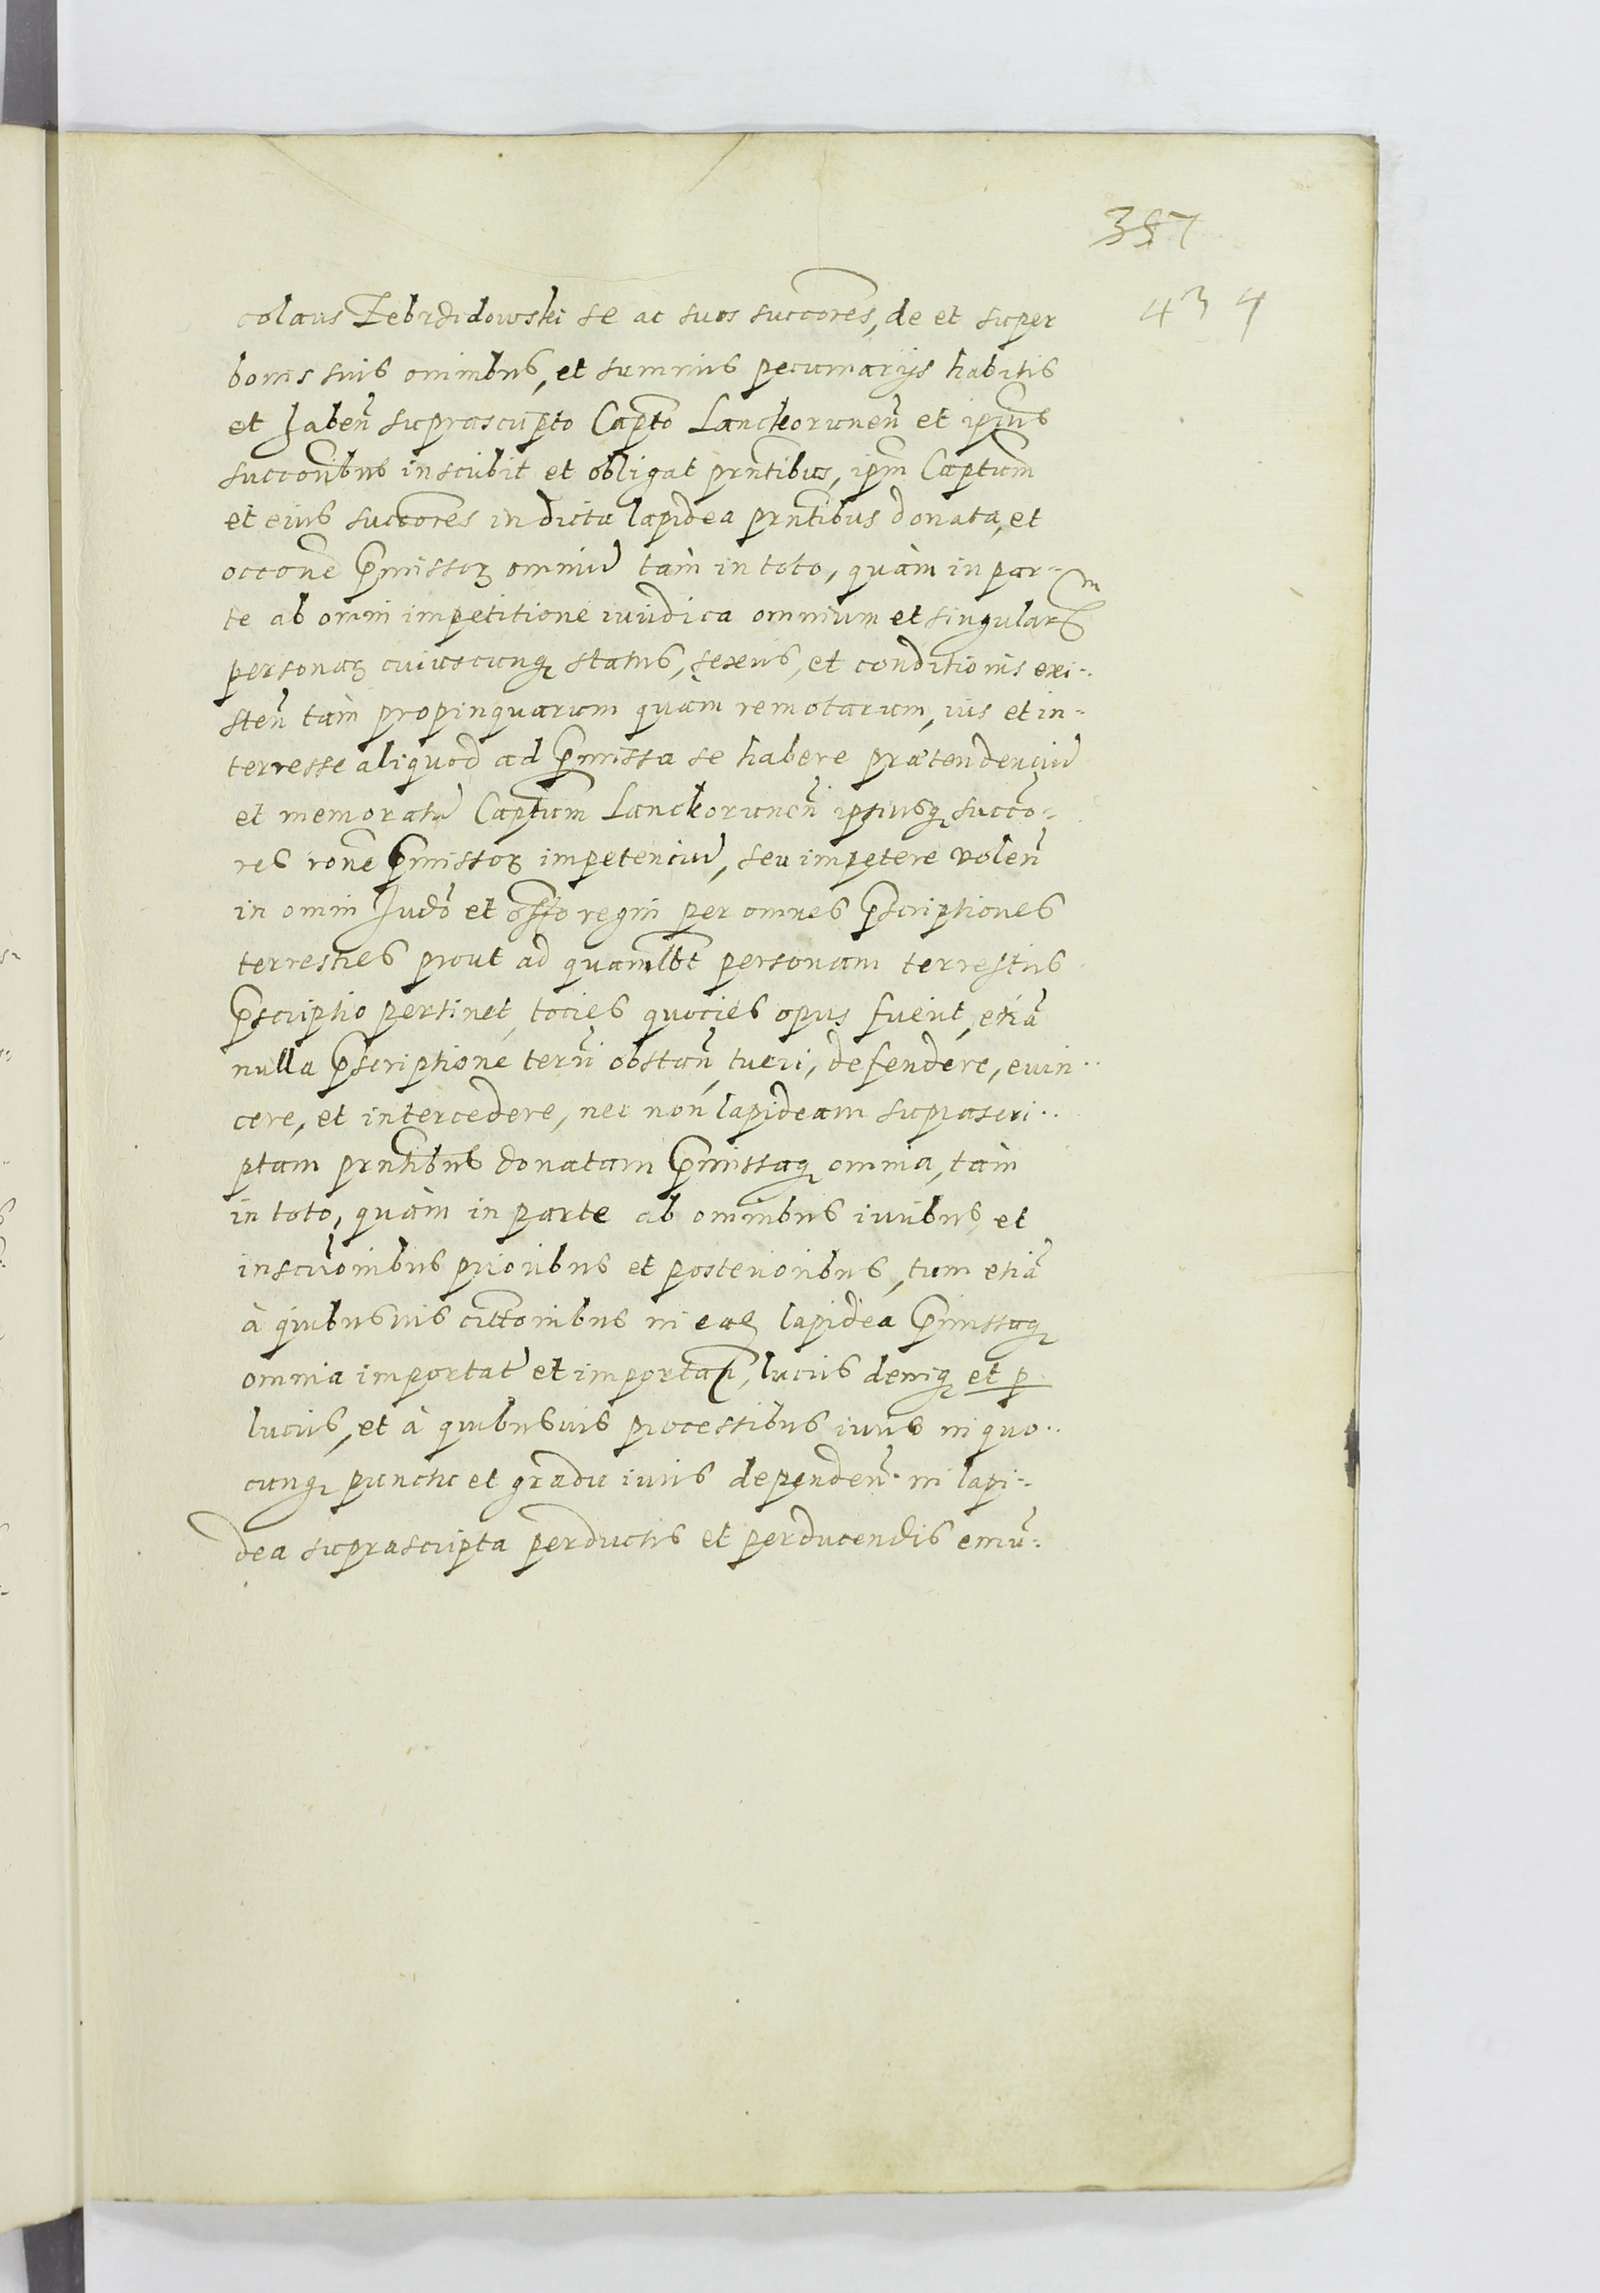 387
434
colaus Zebrzidowski se ac suos succores, de et super
bonis suis omnibus, et summis pecuniarijs habitis
et haben̄ suprascripto Capto Lanckorunen̄ et ipius
succoribus inscribit et obligat prntibus, ipm Captum
et eius succores in dicta lapidea prntibus donata, et
occone p̄missoꝝ omniū tàm in toto, quàm in par-
te ab omni impetitione iuridica omnium et singularum
personaꝝ cuiuscunqꝫ status, sexus, et conditionis exi-
sten̄ tàm propinquarum quàm remotarum, ius et in-
terresse aliquod ad p̄missa se habere prætendenciū
et memoratū Captum Lanckorunen̄ ipsiusqꝫ succo-
res rone p̄missoꝝ impetenciū, seu impetere volen̄
in omni Judō et offo regni per omnes p̄scriptiones
terrestres prout ad quamlbt personam terrestris
p̄scriptio pertinet, tocies quocies opus fuerit, etiā
nulla p̄scriptione terrī obstan̄, tueri, defendere, evin-
cere, et intercedere, nec non lapideam suprascri-
ptam prntibus donatam p̄missaqꝫ omnia, tàm
in toto, quàm in parte ab omnibus iuribus et
inscrōnibus prioribus et posterioribus, tum etiā
à quibusvis cittonibus in eaꝫ lapidea p̄missaqꝫ
omnia importat̄ et importan̄, lucris deniqꝫ et p
lucris, et à quibusvis processibus iuris in quo-
cunqꝫ punctu et gradu iuris dependen̄ in lapi-
dea suprascripta perductis et perducendis emū-